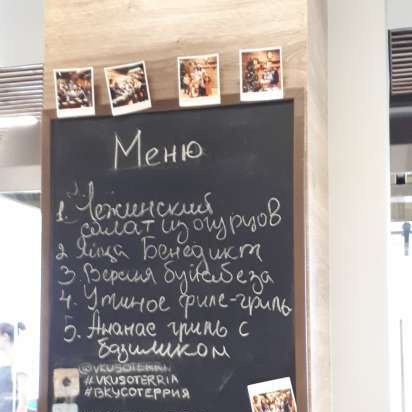 Меню
1. Нежинский
салат из огурцов
2 Яйца Бенедикт
3 Версия буйабеза
4. Утиное филе-гриль
5. Ананас гриль с
базиликом
@VKUSOTERRIA
#VKUSOTERRIA
#ВКУСОТЕРРИЯ